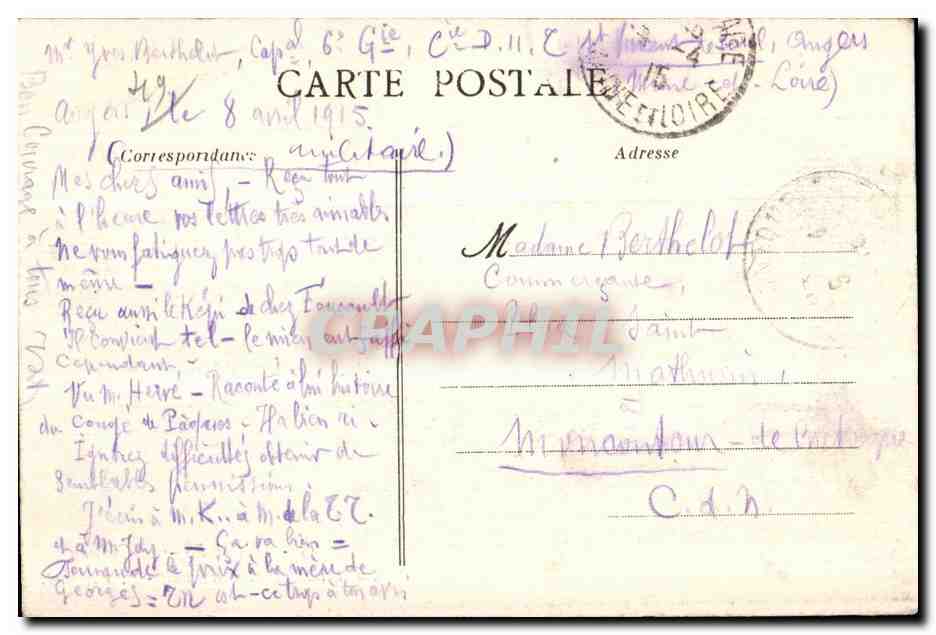 Mr Yves Berthelot, Capal, 6e Cie, Cie D. 11. E. St Vincent de Paul, Angers
(Maine-et-Loire)
CARTE POSTALE
49
Angers, le 8 avril 1915.
(Correspondance militaire.)
Adresse
MAINE ET LOIRE
15
Mes chers amis, - Reçu tout
à l'heure vos lettres très aimables
Ne vous fatiguez pas trop tout de
même -
Reçu aussi le Képi de chez Foucault
Il convient tel - le mien eut suffi
cependant. -
Vu M. Hervé - Raconté à lui histoire
du Congé de Pâques - Il a bien ri -
Ignorez difficultés obtenir de
semblables permissions.
J'écris à M. K.. à M. de la T.T.
et à M. Jdy. - Ça va bien =
Demandé le prix à la mère de
Georges =
est-ce trop à ton avis
Bon Courage à tous
Madame Berthelot
Commerçante,
Place Saint
Mathurin,
à
Moncontour - de Bretagne
C.d.N.
CPAPHIL